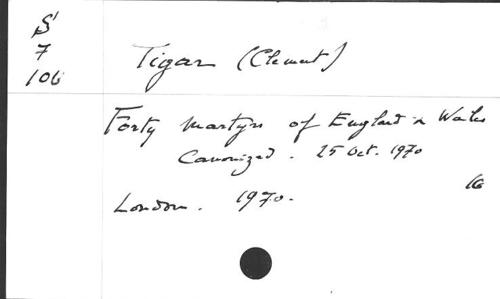 S'
7
106
Tigar (Clement)
Forty Martyrs of England & Wales
Canonized. 25 Oct. 1970
16
London. 1970.